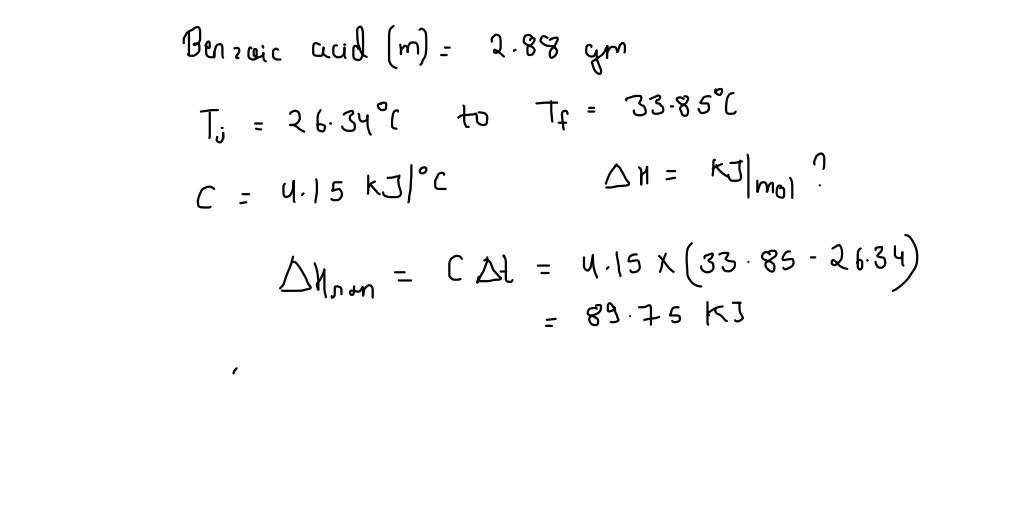 Benzoic acid (m) = 2.88 gm
Ti = 26.34°C to Tf = 33.85°C
C = 4.15 KJ/°C ΔH = KJ/mol ?
ΔHrxn = C Δt = 4.15 x (33.85 - 26.34)
= 89.75 KJ